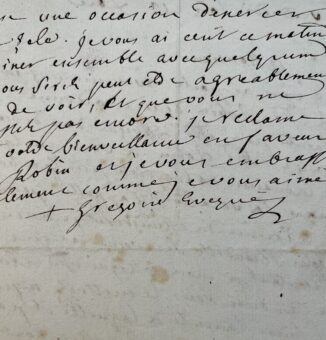 se une occasion d'exercer
zele. je vous ai ecrit ce matin
iner ensemble avec quelqu'un
ous serés peut etre agreablement
de voir, et que vous ne
pas encore. je reclame
votre bienveillance en faveur
Robin et je vous embrasse
llement comme je vous aime
+ Gregoire Eveque